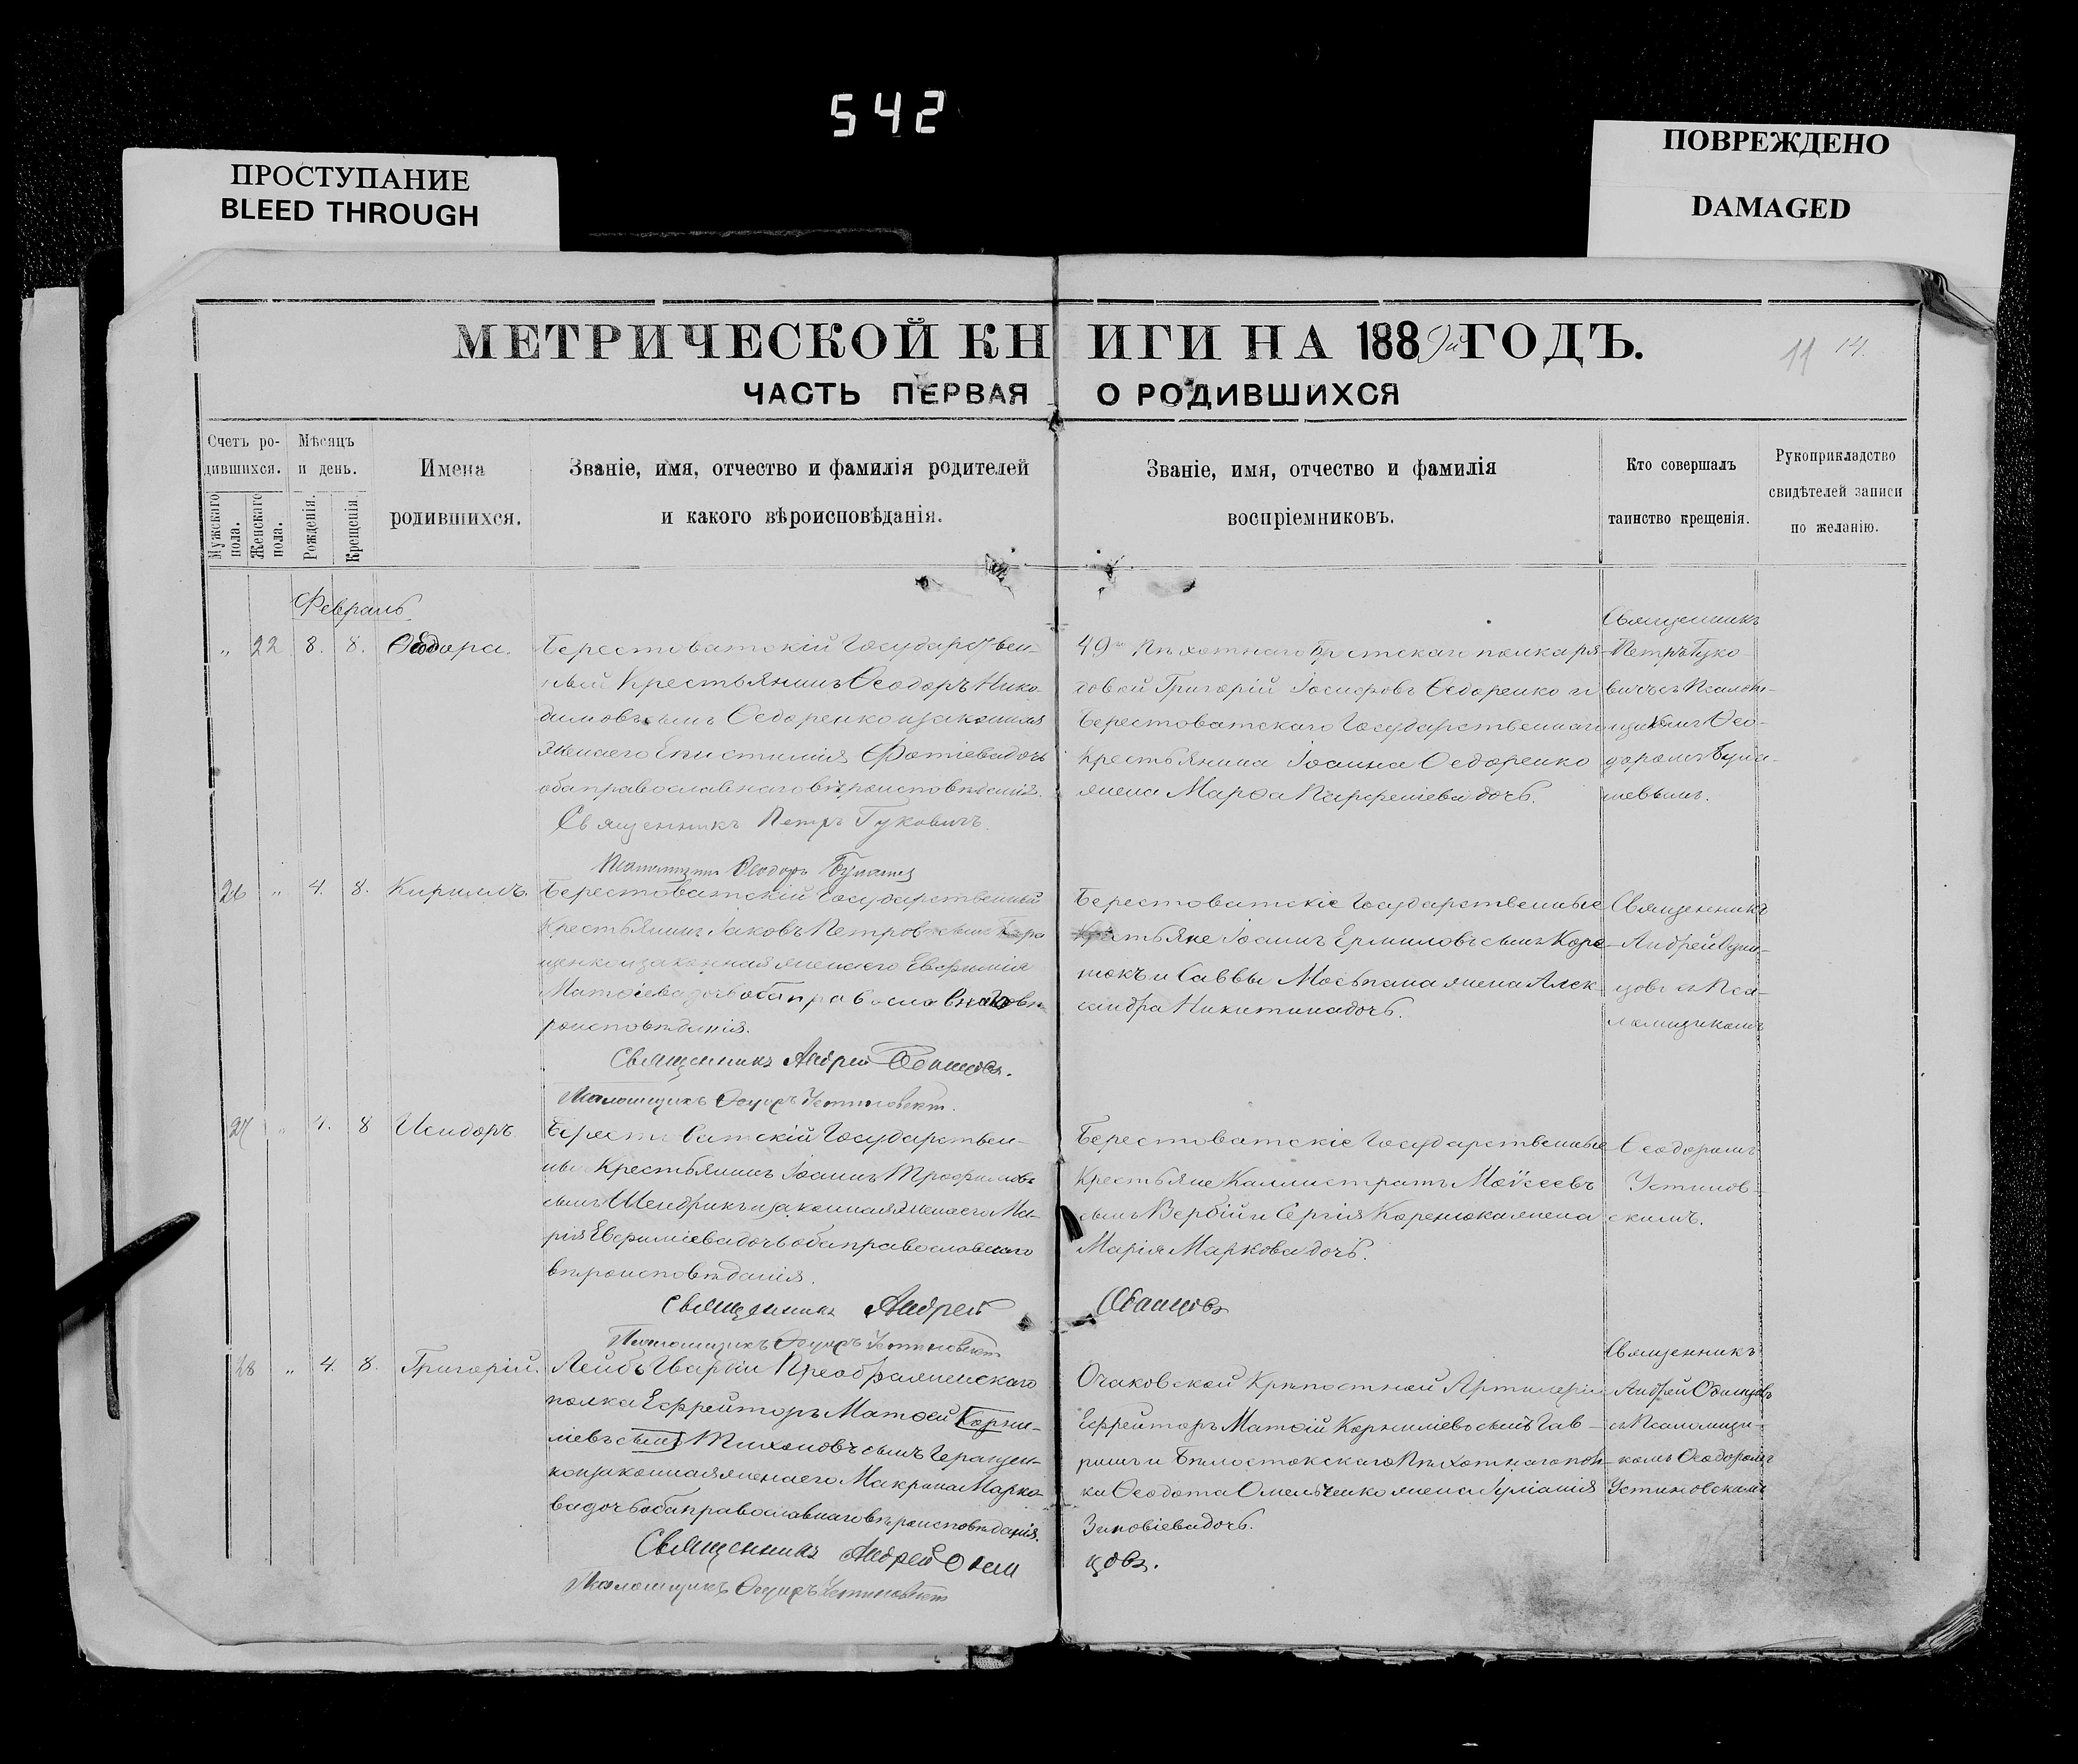 542
ПРОСТУПАНИЕ
BLEED THROUGH
ПОВРЕЖДЕНО
DAMAGED
МЕТРИЧЕСКОЙ КНИГИ НА 1889й ГОДЪ.
11 14.
ЧАСТЬ ПЕРВАЯ О РОДИВШИХСЯ
Счетъ родившихся.
Мужскаго пола.
Женскаго пола.
Мѣсяцъ и день.
Рожденія.
Крещенія
Имена
родившихся.
Званіе, имя, отчество и фамилія родителей
и какого вѣроисповѣданія.
Званіе, имя, отчество и фамилія
воспріемниковъ.
Кто совершалъ
таинство крещенія.
Рукоприкладство
свидѣтелей записи
по желанію.
Февраль
„ 22 8. 8. Ѳеодора.
Берестоватскій Государствен-
ный Крестьянинъ Ѳеодоръ Нико-
димовъ сынъ Ѳедоренко и законная
жена его Епистимія Фотіева дочь
оба православнаго вѣроисповѣданія.
Священникъ Петръ Гуковичъ.
Псаломщикъ Ѳеодоръ
49го Пѣхотнаго Брестскаго полка ря-
довой Григорій Іосифовъ Ѳедоренко и
Берестоватскаго Государственнаго
Крестьянина Іоанна Ѳедоренко
жена Марѳа Парфеніева дочь.
Священникъ
Петръ Гуко-
вичъ съ Псалом-
щикомъ Ѳео-
доромъ
26 „ 4. 8. Кириллъ.
Берестоватскій Государственный
Крестьянинъ Іаковъ Петровъ сынъ
щенко и законная жена его Евфимія
Матѳіева дочь оба православнаго вѣ-
роисповѣданія.
Священникъ Андрей Одинцовъ.
Псаломщикъ Ѳеодоръ Устиновскій.
Берестоватскіе Государственные
Крестьяне Іоаннъ Ермиловъ сынъ Коре-
нюкъ и Саввы Мосьпана жена Алек-
сандра Никитина дочь.
Священникъ
Андрей Один-
цовъ съ Пса-
ломщикомъ
27 „ 4. 8 Исидоръ
Берестоватскій Государствен-
ный Крестьянинъ Іоаннъ Трофимовъ
сынъ Шендрикъ и законная жена его Ма-
рія Евфиміева дочь оба православнаго
вѣроисповѣданія.
Священникъ Андрей Одинцовъ
Псаломщикъ Ѳеодоръ Устиновскій
Берестоватскіе Государственные
Крестьяне Каллистратъ Моѵсеевъ
сынъ Вербій и Сергія Коренюка жена
Марія Маркова дочь.
Ѳеодоромъ
Устинов-
скимъ.
28 „ 4. 8. Григорій.
Лейбъ Гвардіи Преображенскаго
полка Ефрейторъ Матѳей Корни-
ліевъ сынъ Тихоновъ сынъ Геращен-
ко и законная жена его Макрина Марко-
ва дочь оба православнаго вѣроисповѣданія.
Священникъ Андрей Одинцовъ.
Псаломщикъ Ѳеодоръ Устиновскій
Очаковской Крѣпостной Артилеріи
Ефрейторъ Матѳій Корниліевъ сынъ Гав-
ришъ и Бѣлостокскаго Пѣхотнаго пол-
ка Ѳеодота Омельченко жена Іуліанія
Зиновіева дочь.
Священникъ
Андрей Одинцовъ
съ Псаломщи-
комъ Ѳеодоромъ
Устиновскимъ